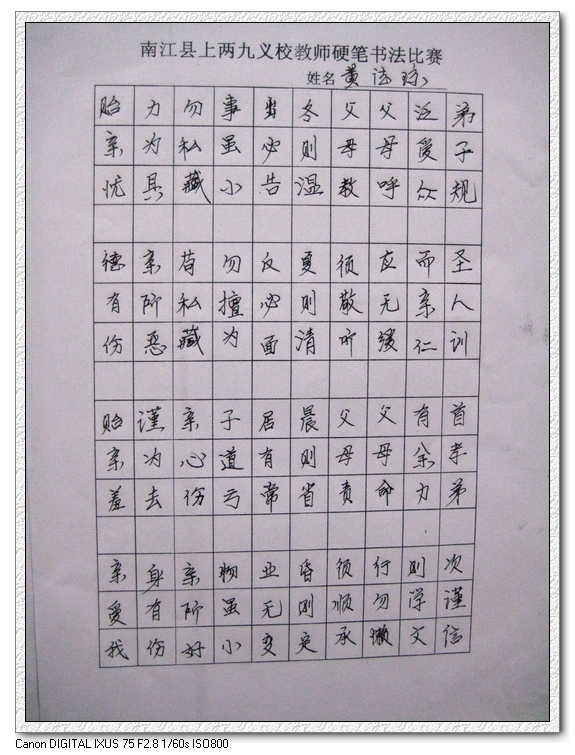 南江县上两九义校教师硬笔书法比赛
姓名 黄
弟子规 圣人训 首孝弟 次谨信
泛爱众 而亲仁 有余力 则学文
父母呼 应无缓 父母命 行勿懒
父母教 须敬听 父母责 须顺承
冬则温 夏则清 晨则省 昏则定
出必告 反必面 居有常 业无变
事虽小 勿擅为 子道亏 物虽小
勿私藏 苟私藏 亲心伤 亲所好
力为具 亲所恶 谨为去 身有伤
贻亲忧 德有伤 贻亲羞 亲爱我
Canon DIGITAL IXUS 75 F2.8 1/60s ISO800